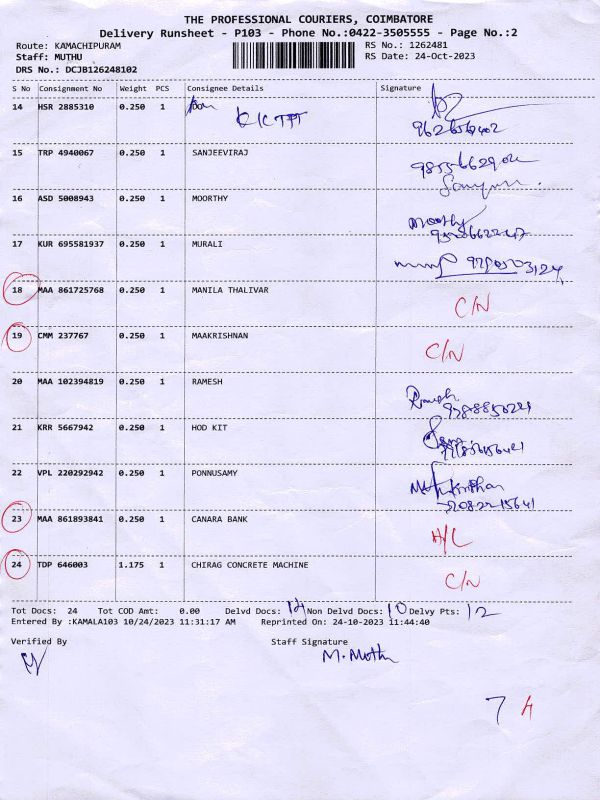 THE PROFESSIONAL COURIERS, COIMBATORE
Delivery Runsheet - P103 - Phone No.:0422-3505555 - Page No.:2
Route: KAMACHIPURAM RS No.: 1262481
Staff: MUTHU RS Date: 24-Oct-2023
DRS No.: DCJB126248102
S No Consignment No Weight PCS Consignee Details Signature
14 HSR 2885310 0.250 1
15 TRP 4940067 0.250 1 SANJEEVIRAJ
16 ASD 5008943 0.250 1 MOORTHY
Moorthy
17 KUR 695581937 0.250 1 MURALI
18 MAA 861725768 0.250 1 MANILA THALIVAR C/N
19 CMM 237767 0.250 1 MAAKRISHNAN C/N
20 MAA 102394819 0.250 1 RAMESH
Ramesh
21 KRR 5667942 0.250 1 HOD KIT
22 VPL 220292942 0.250 1 PONNUSAMY
23 MAA 861893841 0.250 1 CANARA BANK
24 TDP 646003 1.175 1 CHIRAG CONCRETE MACHINE C/N
Tot Docs: 24 Tot COD Amt: 0.00 Delvd Docs: 14 Non Delvd Docs: 10 Delvy Pts: 12
Entered By :KAMALA103 10/24/2023 11:31:17 AM Reprinted On: 24-10-2023 11:44:40
Verified By Staff Signature
M. Muthu
7